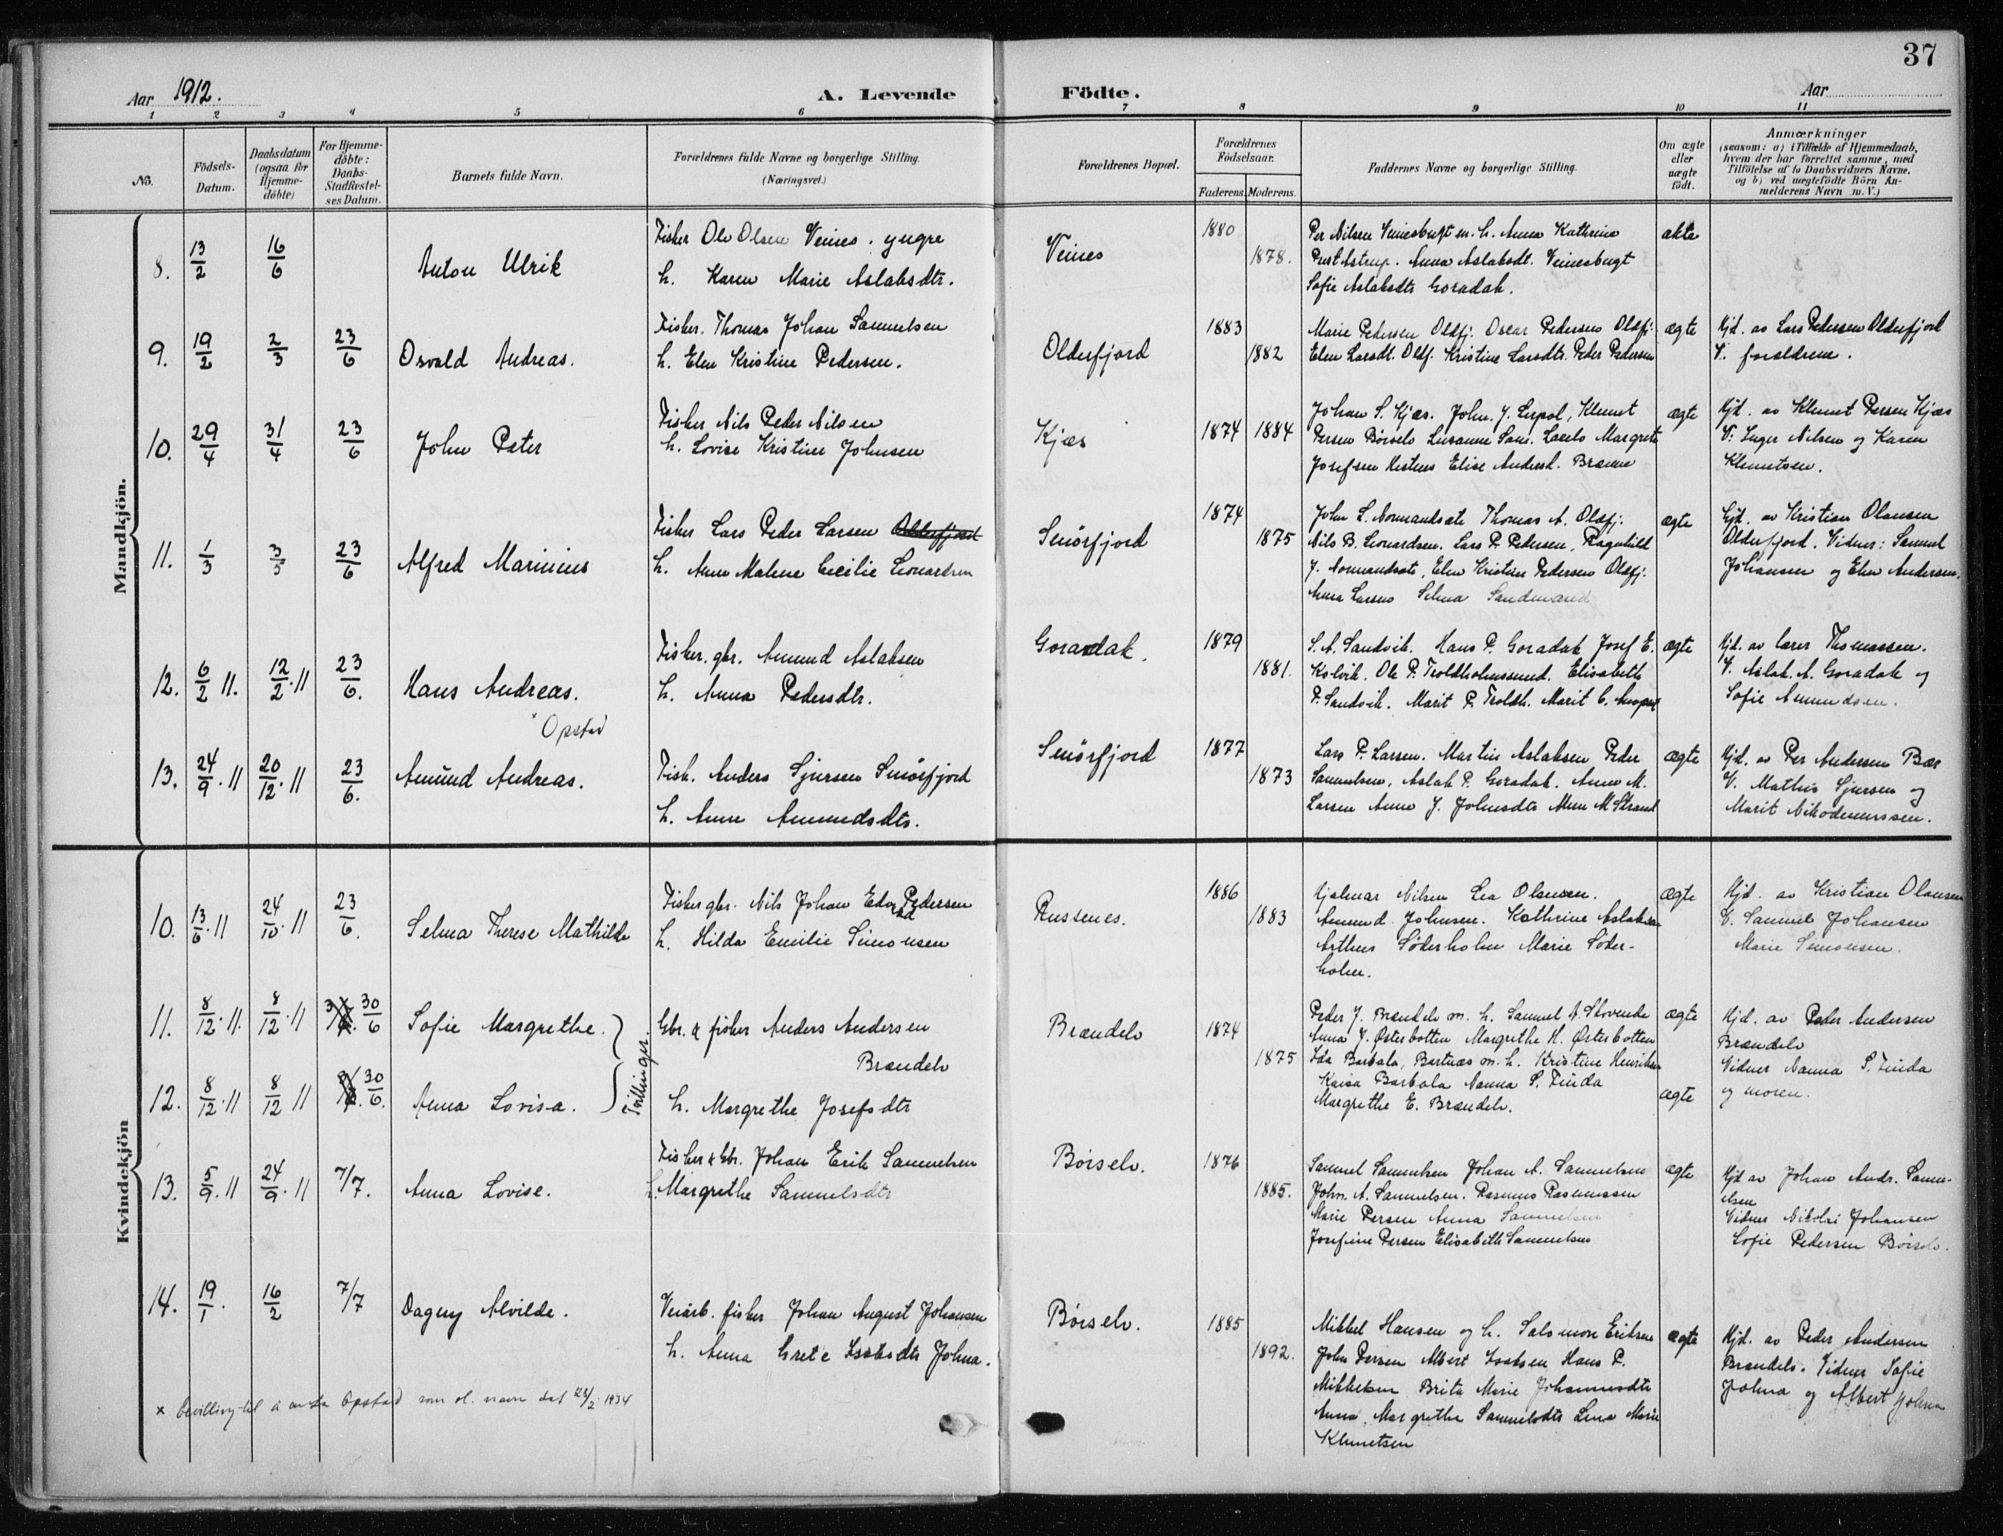 37
Aar 1912. A. Levende Födte. Aar
1 2 3 4 5 6 7 8 9 10 11
No. Födsels-Datum. Daabsdatum (ogsaa for Hjemmedöbte) For Hjemmedöbte: Daabs-Stadfæstelses Datum. Barnets fulde Navn. Forældrenes fulde Navne og borgerlige Stilling. (Næringsvei.) Forældrenes Bopæl. Forældrenes Födselsaar. Faderens. Moderens. Faddernes Navne og borgerlige Stilling. Om ægte eller uægte födt. Anmærkninger (saasom: a) i Tilfælde af Hjemmedaab, hvem der har forrettet samme, med Tilföielse af to Daabsvidners Navne, og b) ved uægtefödte Börn Anmelderens Navn m. V.)
Mandkjön.
8. 13/2 16/6 Anton Ulrik
Fisker Ole Olsen Veines. yngre
h. Karen Marie Aslaksdtr.
Veines 1880 1878.
Per Nilsen Veinesbugt m. h. Anna Kathrine
Astrup. Anna Aslaksdt. Veinesbugt
Sofie Aslaksdtr Goradak.
ækte
9. 19/2 2/3 23/6 Osvald Andreas.
Fisker. Thomas Johan Samuelsen
h. Elen Kristine Pedersen.
Olderfjord 1883 1882
Marie Pedersen Oldfj. Oscar Pedersen Oldfj.
Elen Larsdt. Oldf. Kristine Larsdtr. Peder Pedersen
ægte
Hjd. av Lars Pedersen Olderfjord
V. forældrene.
10. 29/4 31/4 23/6 John Peter
Fisker Nils Peder Nilsen
h. Lovise Kristine Johnsen
Kjæs 1874 1884
Johan S. Kjæs. John. J. Klemet
Persen Børselv Susanne Sam. Margrete
Josefsen Elise Andersd. Brænne
ægte
Hjd. av Klemet Persen Kjæs
V: Inger Nilsen og Karen
Klemetsen.
11. 1/3 3/5 23/6 Alfred Marinius
Fisker Lars Peder Larsen Olderfjord
h. Anne Malene Cecilie Leonardsen
Smørfjord 1874 1875
John L. Normandsæte Thomas A. Oldfj.
Nils B. Leonardsen. Lars P. Pedersen, Ragnhild
J. Normandsæte, Elen Kristine Pedersen Oldfj.
Anna Larsen Selma Sandmand
ægte
Hjd. av Kristian Olausen
Olderfjord. Vidner: Samuel
Johansen og Elen Andersen.
12. 6/2 11. 12/2. 11 23/6. Hans Andreas.
x Opstad
Fisker. gbr. Amund Aslaksen
h. Anna Pedersdtr.
Goradak. 1879 1881.
S. A. Sandvik. Hans P. Goradak Josef E.
Kolvik. Ole P. Troldholmsund. Elisabeth
P. Sandvik. Marit P. Troldh. Marit C.
ægte
Hjd. av lærer Thomassen.
V. Aslak. A. Goradak og
Sofie Amundsen.
13. 24/9. 11 20/12. 11 23/6. Amund Andreas.
Fisk. Anders Sjursen Smørfjord
h. Anne Amundsdtr.
Smørfjord 1877 1873
Lars P. Larsen. Martin Aslaksen Peder
Samuelsen, Aslak P. Goradak. Anne M.
Larsen Anne J. Johnsdtr Anne M Strand
ægte
Hjd. av Per Andersen Bær
V. Mathis Sjursen og
Marit Nikodemussen.
Kvindekjön
10. 13/6. 11 24/10. 11 23/6. Selma Therese Mathilde
Fisker gbr. Nils Johan Edvard Pedersen
h. Hilda Emilie Simonsen
Russenes. 1886 1883
Hjalmar Nilsen Lea Olausen.
Amund Johnsen. Kathrine Aslaksen
Arthur Søderholm Marie Søder-
holm.
ægte
Hjd. av Kristian Olausen
V. Samuel Johansen
Marie Simonsen.
11. 8/12. 11. 8/12. 11 30/6 Sofie Margrethe.
Tvillinger
Gbr. & fisker Anders Andersen
Brændelv
Brændelv 1874 1875
Peder J. Brændelv m. h. Samuel A. Stovende
Anna J. Østerbotten Margrethe H. Østerbotten
Ida Barbala, Bartnæs m. h. Kristine Henriksen
ægte
Hjd. av Peder Andersen
Brændelv
Vidner Nanna S. Finda
12. 8/12. 11 8/12 11 30/6. Anna Lovisa.
h. Margrethe Josefsdtr
Kaisa Barbala Nanna S. Finda
Margrethe E. Brændelv.
ægte
og moren.
13. 5/9. 11 24/9. 11 7/7. Anna Lovise.
Fisker & Gbr. Johan Erik Samuelsen
h. Margrethe Samuelsdtr
Børselv. 1876 1885.
Samuel Samuelsen Johan A. Samuelsen
John. A. Samuelsen. Rasmus Rasmussen
Marie Persen Anna Samuelsen
Josefine Persen Elisabeth Samuelsen
ægte
Hjd av Johan Andr. Samu-
elsen
Vidner Nikolai Johansen
Sofie Pedersen Børselv.
14. 19/1. 16/2 7/7 Dagny Alvilde.
Veiarb. fisker Johan August Johansen
h. Anna Grete Isaksdtr Johna.
Børselv. 1885 1892.
Mikkel Hansen og h. Salomon Eriksen
John Persen Albert Isaksen Hans P.
Mikkelsen Brita Marie Johannesdtr
Anna, Margrethe Samuelsdtr Lena Marie
Klemetsen
ægte
Hjd. av Peder Andersen
Brændelv. Vidner Sofie
Johna og Albert Johna
x Bevilling til å anta Opstad som sl. navn dat 22/2 1934